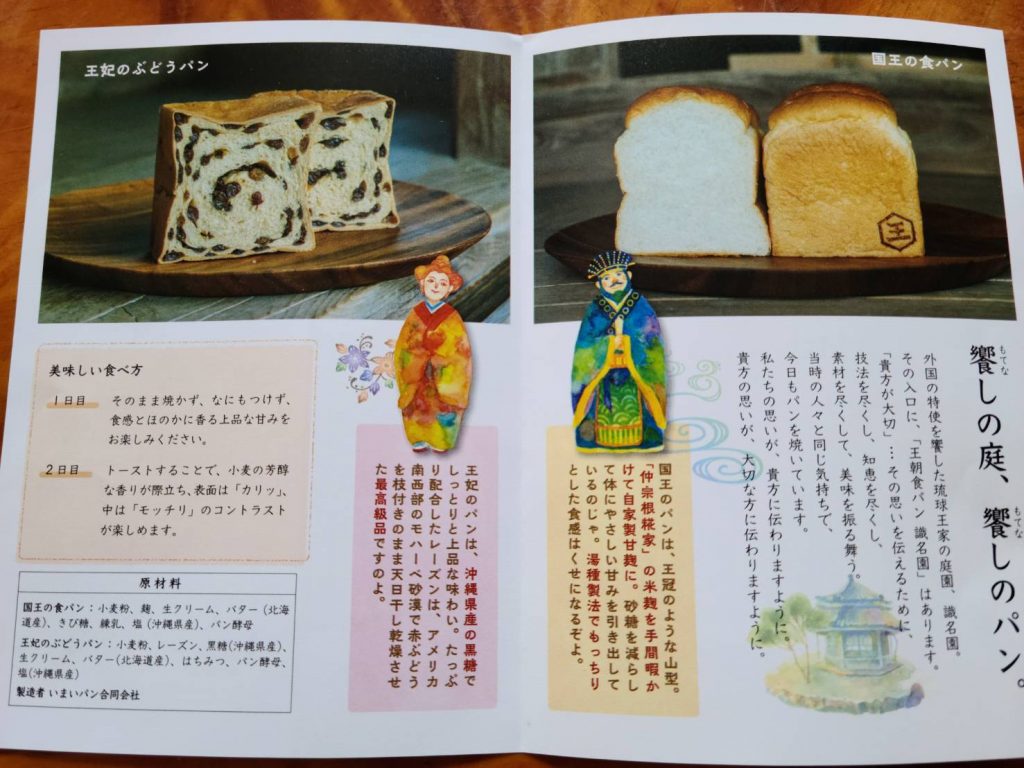 王妃のぶどうパン
国王の食パン
王
饗しの庭、饗しのパン。
もてな
もてな
外国の特使を饗した琉球王家の庭園、識名園。
その入口に、「王朝食パン 識名園」はあります。
「貴方が大切」…その思いを伝えるために、
技法を尽くし、知恵を尽くし、
素材を尽くして、美味を振る舞う。
当時の人々と同じ気持ちで、
今日もパンを焼いています。
私たちの思いが、貴方に伝わりますように。
貴方の思いが、大切な方に伝わりますように。
国王のパンは、王冠のような山型。
「仲宗根糀家」の米麹を手間暇か
けて自家製甘麹に。砂糖を減らし
て体にやさしい甘みを引き出して
いるのじゃ。湯種製法でもっちり
とした食感はくせになるぞよ。
王妃のパンは、沖縄県産の黒糖で
しっとりと上品な味わい。たっぷ
り配合したレーズンは、アメリカ
南西部のモハーベ砂漠で赤ぶどう
を枝付きのまま天日干し乾燥させ
た最高級品ですのよ。
美味しい食べ方
1日目 そのまま焼かず、なにもつけず、
食感とほのかに香る上品な甘みを
お楽しみください。
2日目 トーストすることで、小麦の芳醇
な香りが際立ち、表面は「カリッ」、
中は「モッチリ」のコントラスト
が楽しめます。
原材料
国王の食パン：小麦粉、麹、生クリーム、バター（北海
道産）、きび糖、練乳、塩（沖縄県産）、パン酵母
王妃のぶどうパン：小麦粉、レーズン、黒糖(沖縄県産)、
生クリーム、バター(北海道産）、はちみつ、パン酵母、
塩(沖縄県産)
製造者 いまいパン合同会社